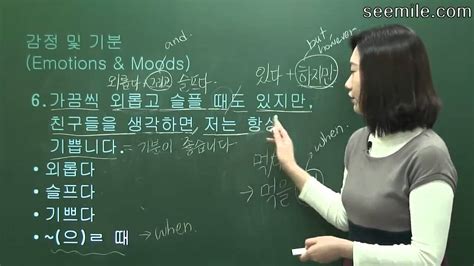 seemile.com
감정 및 기분
(Emotions & Moods)
and.
but
however
외롭다 + 그리고 슬프다.
있다 + 하지만
6. 가끔씩 외롭고 슬플 때도 있지만,
친구들을 생각하면, 저는 항상
기쁩니다. = 기분이 좋습니다.
when.
• 외롭다
• 슬프다
• 기쁘다
• ~(으)ㄹ 때 → when.
→ 먹을